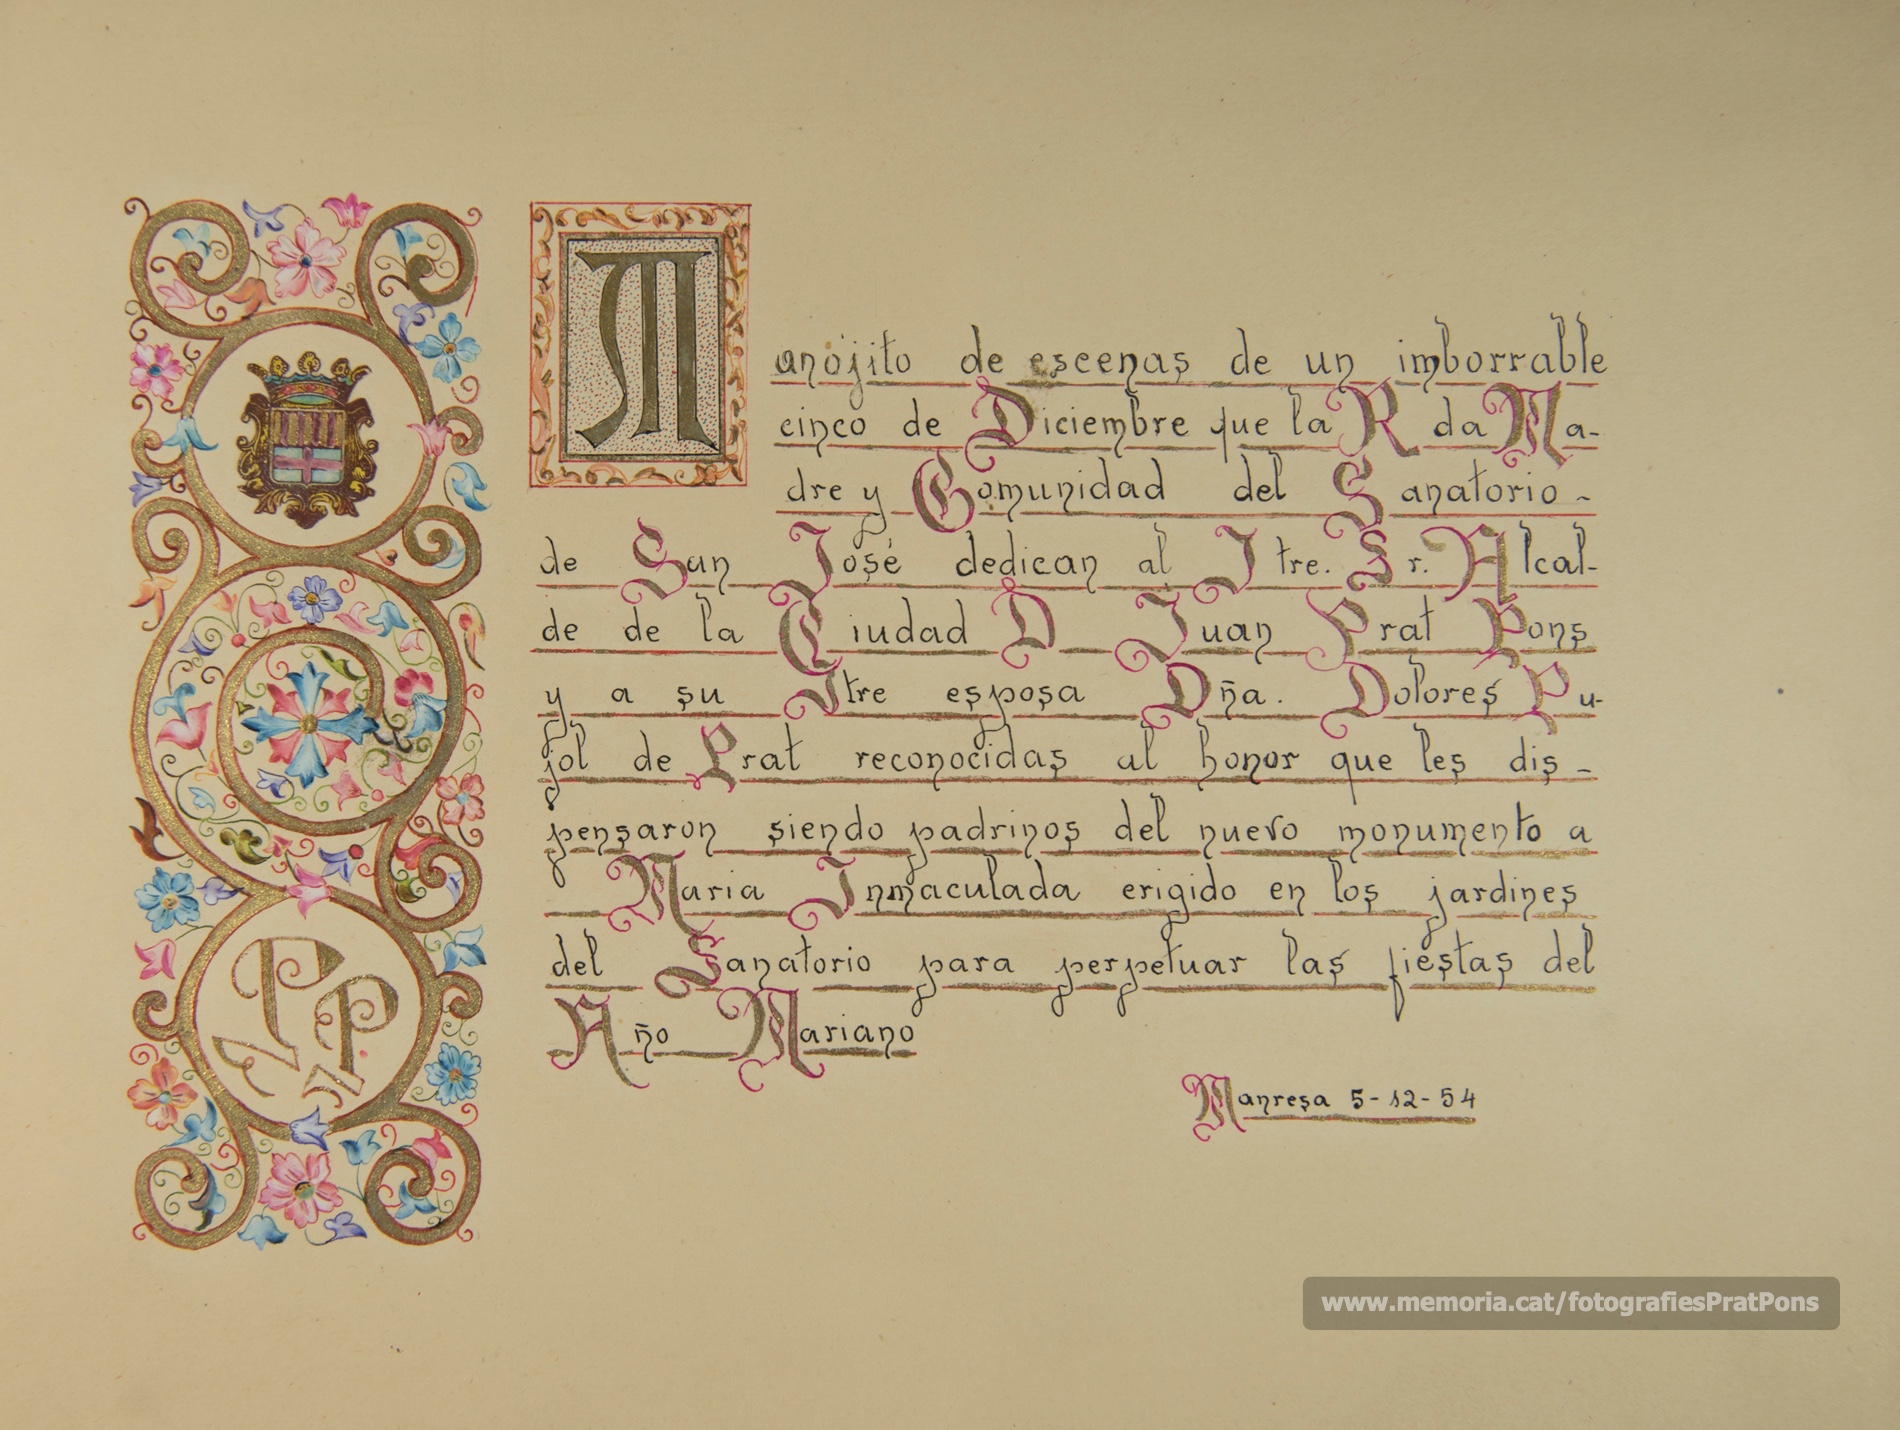 Manojito de escenas de un imborrable
cinco de Diciembre que la Rda Ma-
dre y Comunidad del Sanatorio -
de San José dedican al Itre. Sr. Alcal-
de de la Ciudad D Juan Prat Pons
y a su Itre esposa Dña. Dolores Pu-
jol de Prat reconocidas al honor que les dis-
pensaron siendo padrinos del nuevo monumento a
Maria Inmaculada erigido en los jardines
del Sanatorio para perpetuar las fiestas del
Año Mariano
Manresa 5-12-54
PP
www.memoria.cat/fotografiesPratPons